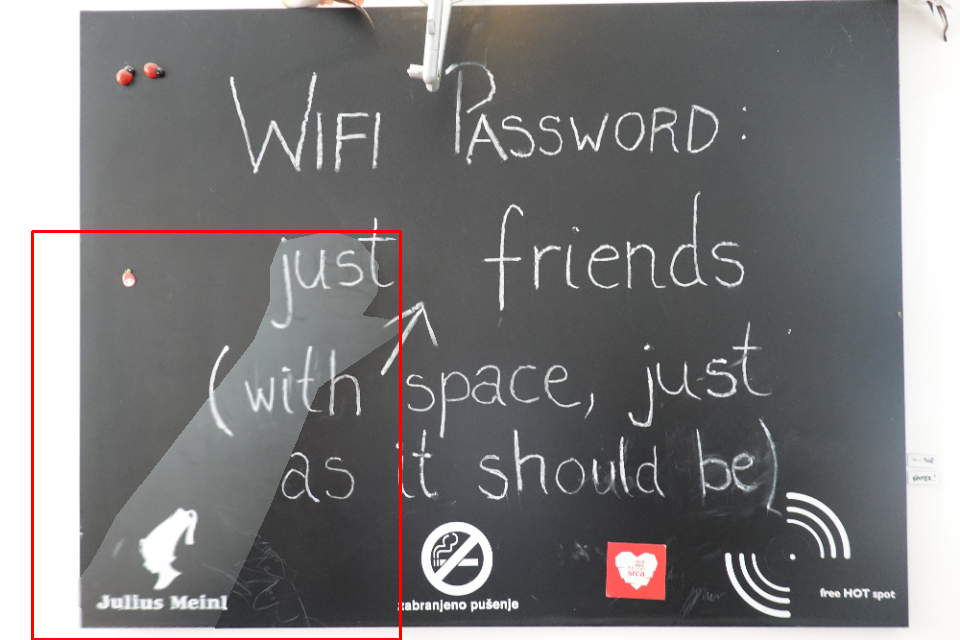 WIFI PASSWORD:
just friends
(with space, just
as it should be)
Julius Meinl
zabranjeno pušenje
free HOT spot